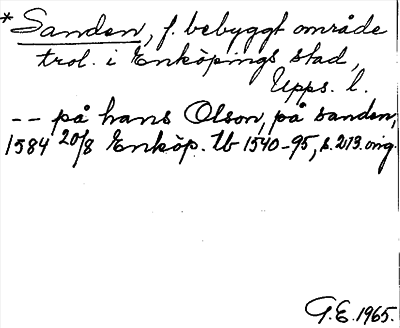 * Sanden, f. bebyggt område
trol. i Enköpings stad,
Upps. l.
-- på hans Olson, på sanden,
1584 20/8 Enköp. tb 1540-95, s. 219. orig.
G.E. 1965.